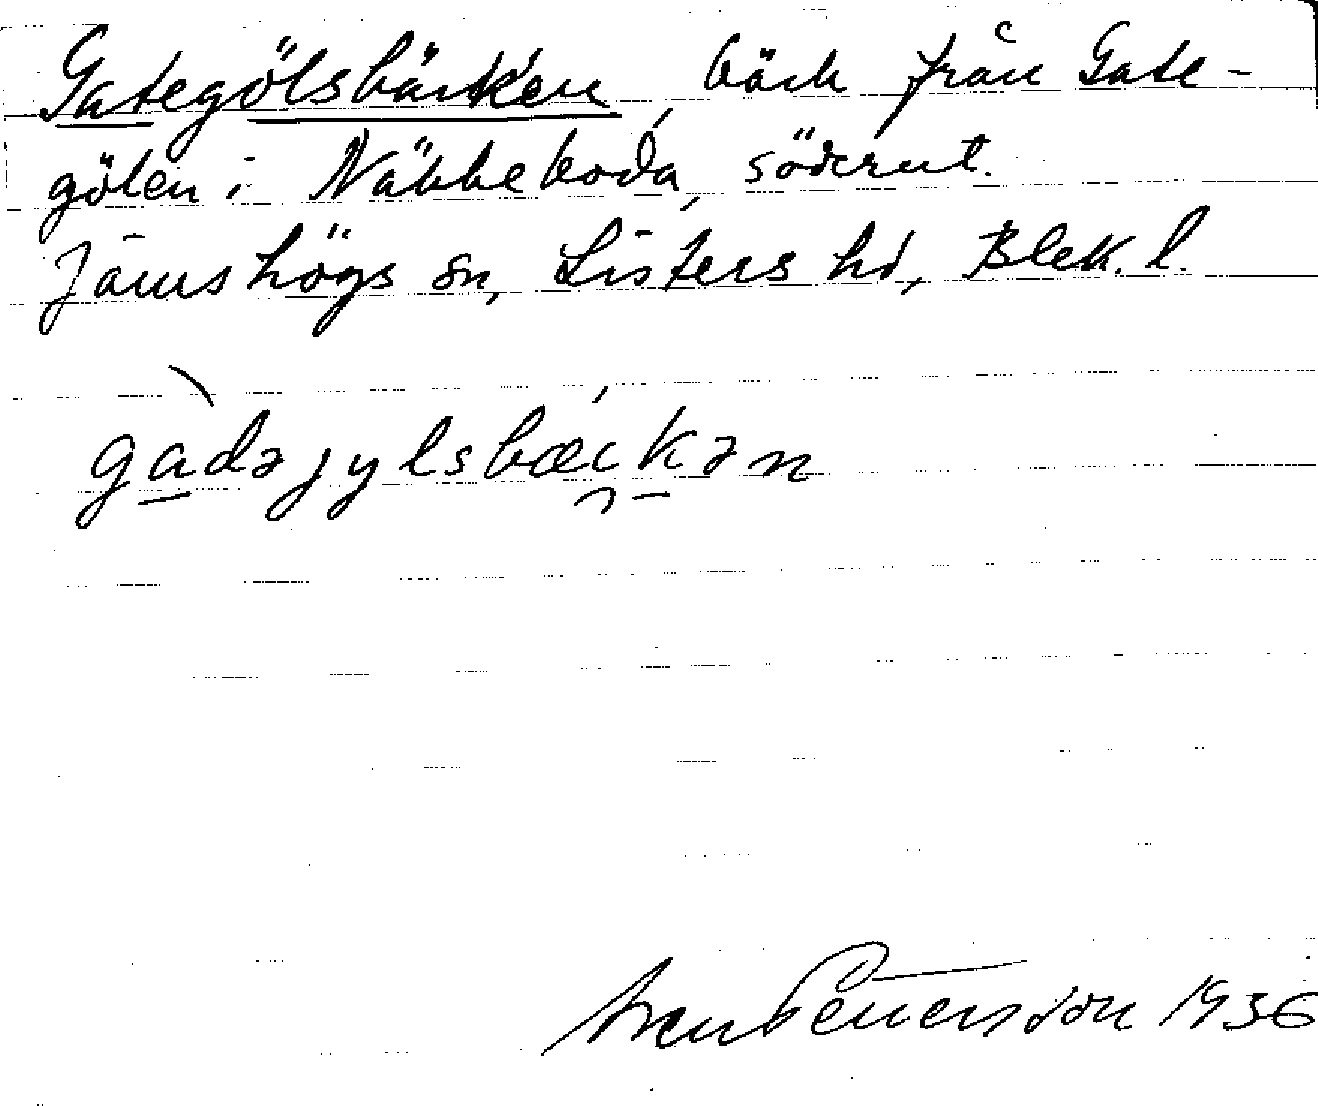 Gategölsbäcken, bäck från Gate-
gölen i Näbbeboda, söderut.
Jämshögs sn, Listers hd, Blek. l.
gàdəjylsbæckən
Pettersson 1936